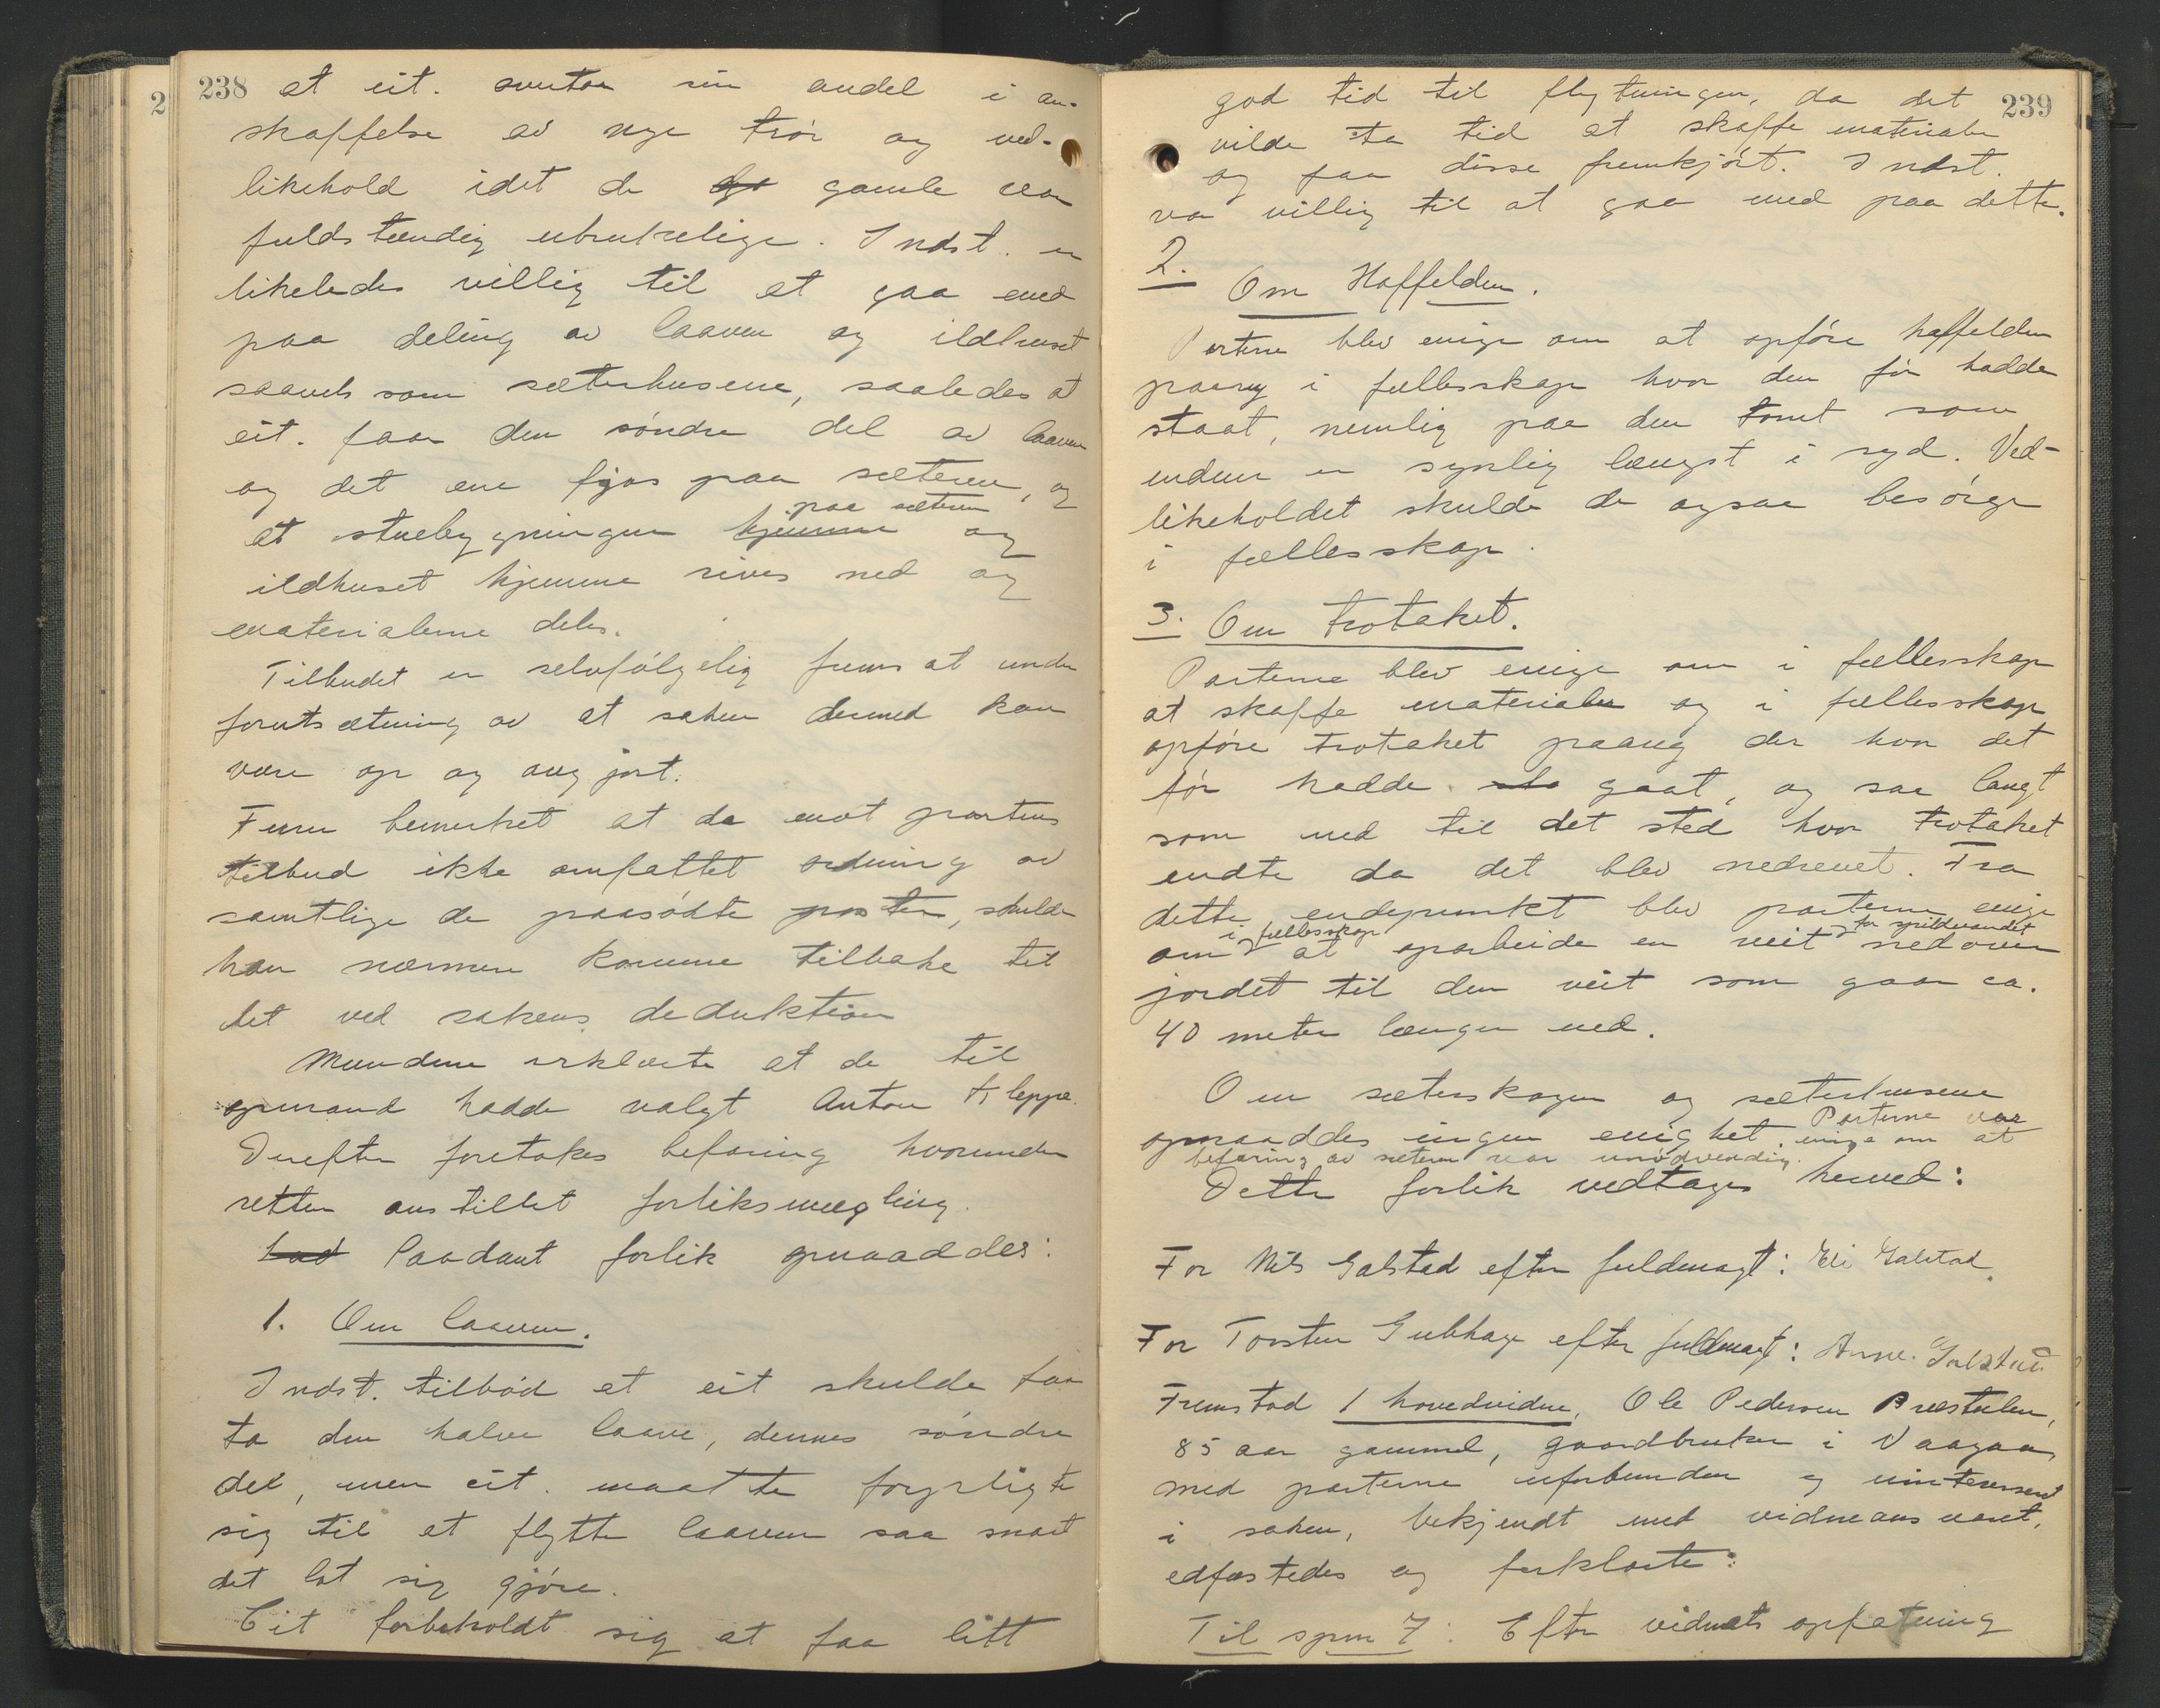 238
at cit. overtar sin andel i an-
skaffelse av nye trør og ved-
likehold idet de gamle var
fuldstændig ubrukelige. Indst. er
likeledes villig til at gaa med
paa deling av laaven og ildhuset
saavels som sæterhusene, saaledes at
cit. faar den søndre del av laaven
og det ene fjøs paa sæteren, og
paa sæteren
at stuebygningen hjemme og
ildhuset hjemme rives ned og
materialerne deles.
Tilbudet er selvfølgelig frems at under
forutsætning av at saken dermed kan
være op og avgjort.
Frem bemerket at da mot partens
tilbud ikke omfattet ordning av
samtlige de paasøkte poster, skulde
han nærmere komme tilbake til
det ved sakens deduktion
Mændene erklærte at de til
opmand hadde valgt Anton Kleppe.
Derefter foretokes befaring hvorunder
retten anstillet forliksmægling.
Saadant forlik opnaaddes:
1. Om laaven.
Indst. tilbød at cit skulde faa
ta den halve laave, dennes søndre
del, men cit. maatte forpligte
sig til at flytte laaven saa snart
det lot sig gjøre.
Cit forbeholdt sig at faa litt
239
god tid til flytningen, da det
vilde ta tid at skaffe materialer
og faa disse fremkjørt. Indst.
var villig til at gaa med paa dette.
2.
Om Haffelden.
Parterne blev enige om at opføre haffelden
paany i fællesskap hvor den før hadde
staat, nemlig paa den tomt som
endnu er synlig længst i syd. Ved-
likeholdet skulde de ogsaa besørge
i fællesskap.
3. Om trotaket.
Parterne blev enige om i fællesskap
at skaffe materialer og i fællesskap
opføre trotaket paany der hvor det
før hadde gaat, og saa langt
som ned til det sted hvor trotaket
endte da det blev nedrevet. Fra
dette endepunkt blev parterne enige
i fællesskap for spildvandet
om at oparbeide en veit nedover
jordet til den veit som gaar ca.
40 meter længer ned.
Om sæterskogen og sæterhusene
opnaaddes ingen enighet. Parterne var enige om at
befaring av sæteren var unødvendig.
Dette forlik vedtages herved:
For Nils Galstad efter fuldmagt: Eli Galstad.
For Torsten Gubhage efter fuldmagt: Anne Galstad
Fremstod 1 hovedvidne, Ole Pedersen Præstulen,
85 aar gammel, gaardbruker i Vaagaa,
med parterne uforbunden og uinteressert
i saken, bekjendt med vidneansvaret,
edfæstedes og forklarte:
Til spm 7: Efter vidnets opfatning